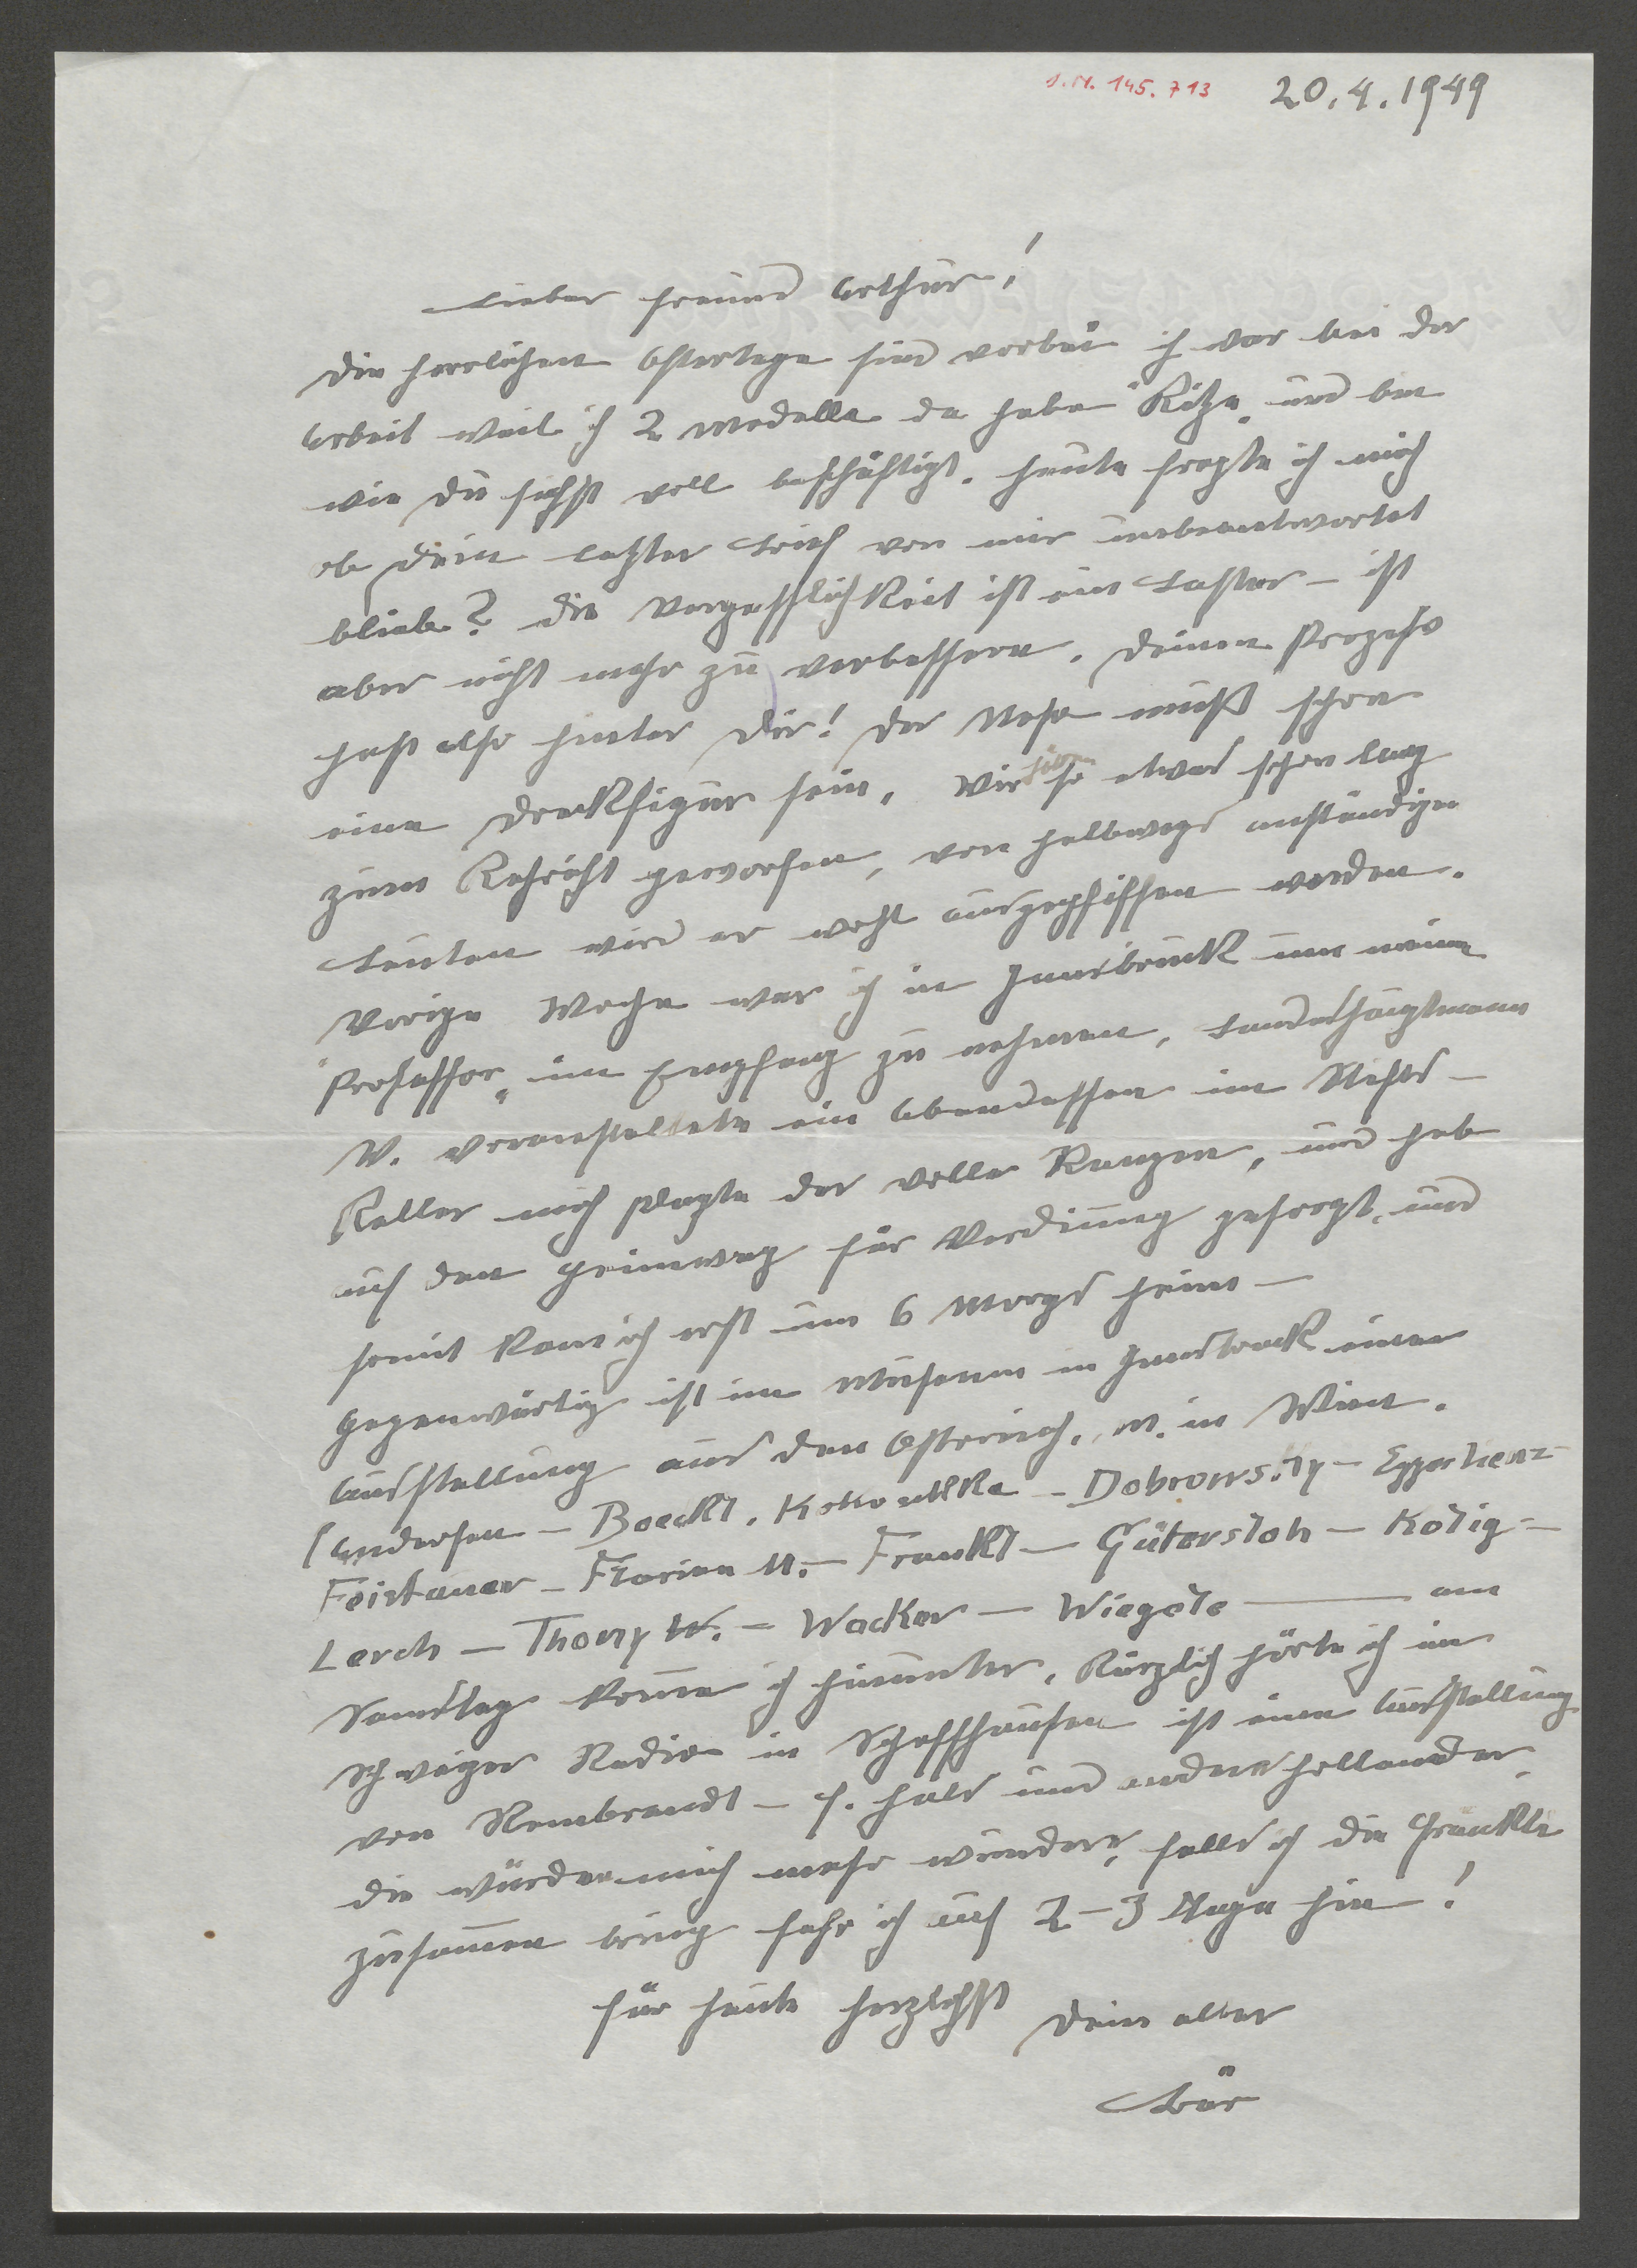 I.N. 145.713 20.4.1949
Lieber Freund Arthur!
Die herrlichen Ostertage sind vorbei ich war bei der
Arbeit weil ich 2 Modelle da habe "Kitze" und bin
wie Du siehst voll beschäftigt. Heute fragte ich mich
ob Dein letzter Brief von mir unbeantwortet
blieb? Die Vergesslichkeit ist ein Laster – ist
aber nicht mehr zu verbessern. Deinen Prozess
hast also hinter Dir! Der muß schon
eine Dreckfigur sein. Wir so etwas schon lang
zum Kehricht geworfen, von halbwegs anständigen
Leuten wird er wohl ausgepfiffen werden.
Vorige Woche war ich in Innsbruck um meinen
"Professor" in Empfang zu nehmen. Landeshauptmann
W. veranstaltete ein Abendessen im Stifts-
Keller mich plagte der volle Ranzen, und hab
auf den Heimweg für Verdauung gesorgt, und
somit kam ich erst um 6 Morgs heim –
Gegenwärtig ist im Museum in Innsbruck eine
Ausstellung aus den Österreich. M. in Wien.
(Andersen – Boeckl. Kokoschka – Dobrowsky – Eggerlienz –
Feistauer – Florian M. – Frankl – Gütersloh – Kolig –
Lerch – Thöny W. – Wacker – Wiegele — am
Samstag komme ich hinunter. Kürzlich hörte ich im
Schweizer Radio in Schaffhausen ist eine Ausstellung
von Rembrandt – F. Hals und andere Holländer,
die würden mich mehr wundern, falls ich die Fränkli
zusammen bring fahr ich auf 2–3 Tage hin!
Für heute herzlichst Dein alter
Bär